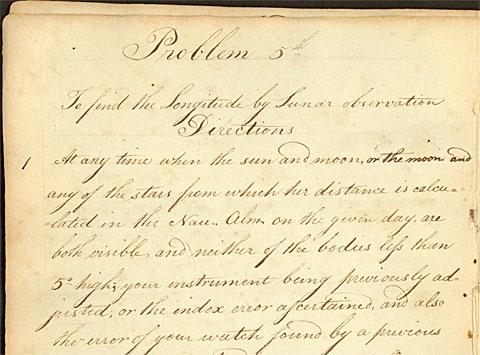 Problem 5th
To find the Longitude by Lunar observation
Directions
1 At any time when the sun and moon, or the moon and
any of the stars from which her distance is calcu-
lated in the Nau.. Alm. on the given day, are
both visible, and neither of the bodies less than
5° high; your instrument being previously ad-
justed, or the index error ascertained, and also
the error of your watch found by a previous